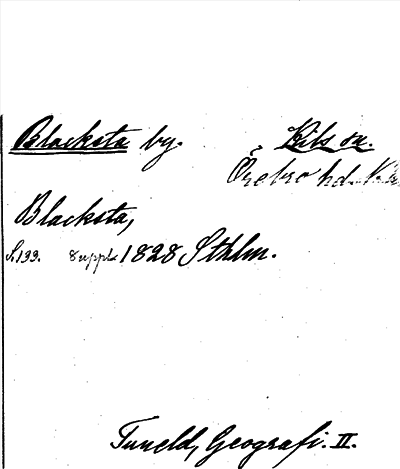 Blacksta by. Kils sn.
Örebro hd.
Blacksta,
S.199. Suppl. 1828 Sthlm.
Tuneld, Geografi. II.